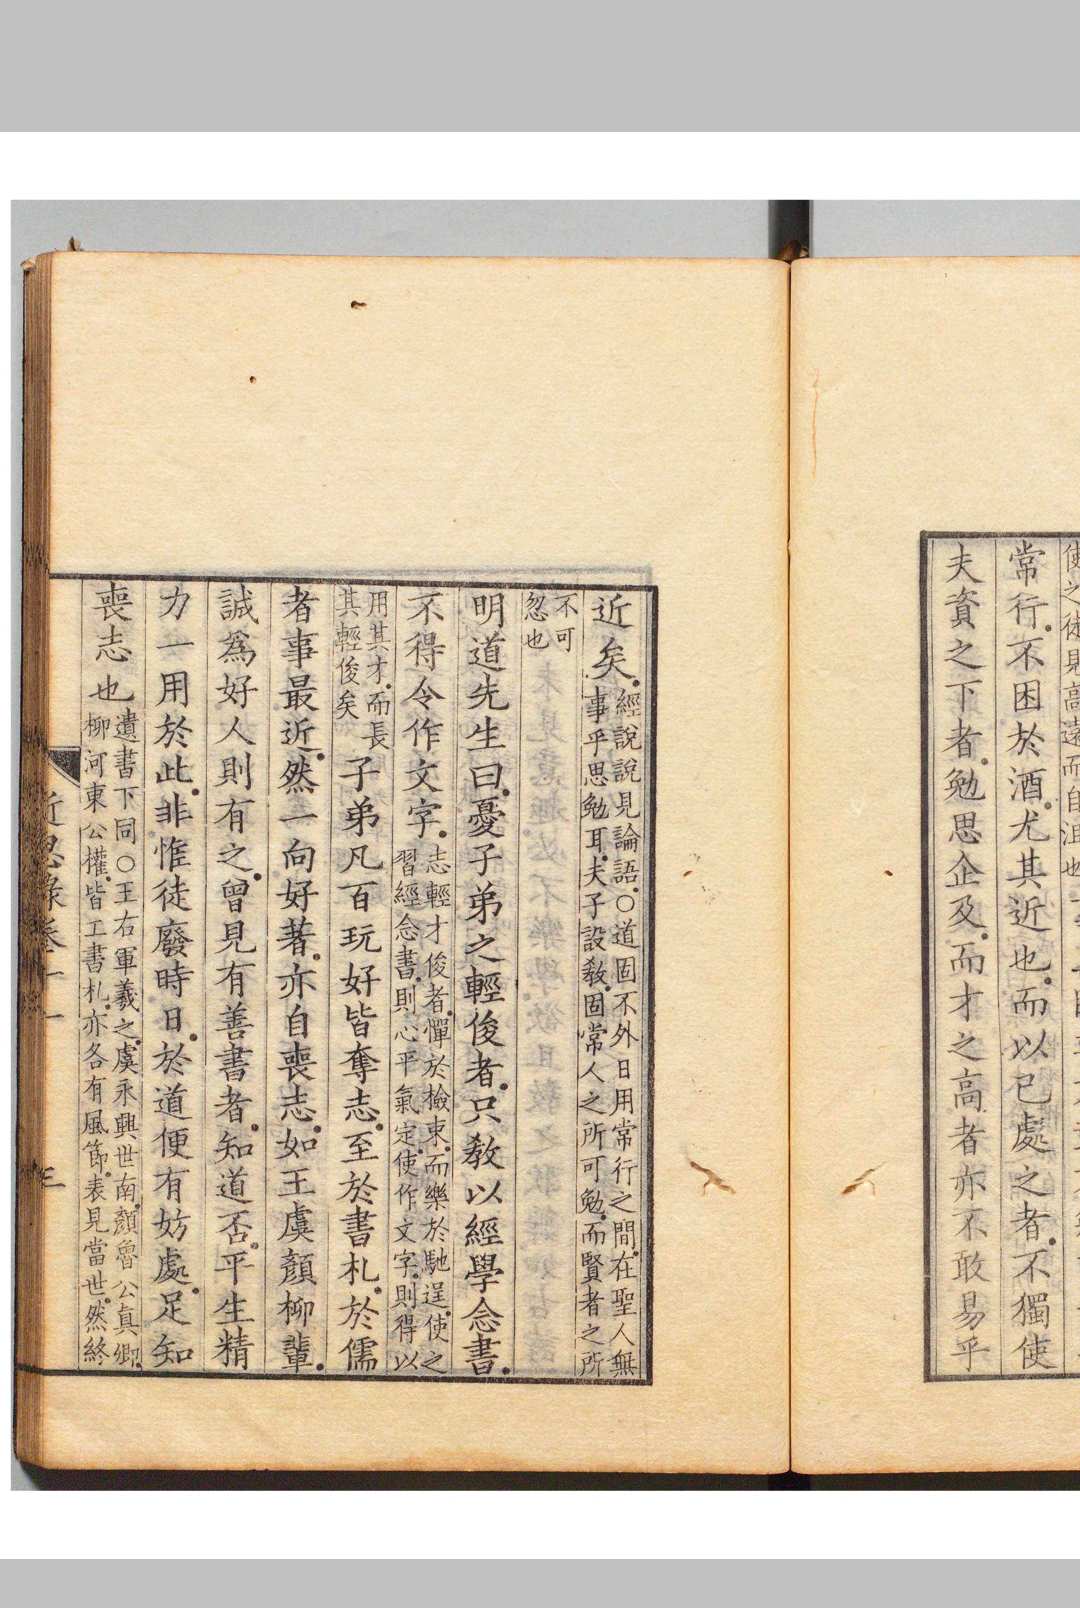 使之俯見高遠而自沮也
常行不困於酒尤其近也而以已處之者不獨使
夫資之下者勉思企及而才之高者亦不敢易乎
近矣
經說說見論語○道固不外日用常行之間在聖人無
事乎思勉耳夫子設敎固常人之所可勉而賢者之所
不可
忽也
明道先生曰憂子弟之輕俊者只敎以經學念書
不得令作文字
志輕才俊者憚於檢束而樂於馳逞使之
習經念書則心平氣定使作文字則得以
用其才而長
其輕俊矣
子弟凡百玩好皆奪志至於書札於儒
者事最近然一向好著亦自喪志如王虞顏柳輩
誠爲好人則有之曾見有善書者知道否平生精
力一用於此非惟徒廢時日於道便有妨處足知
喪志也
遺書下同○王右軍羲之虞永興世南顏魯公真卿
柳河東公權皆工書札亦各有風節表見當世然終
近思錄卷十一
三